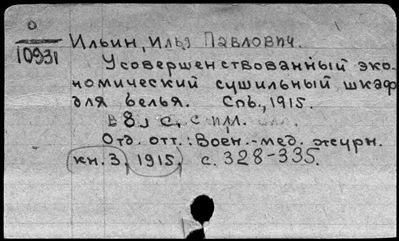 О
10931
Ильин, Илья Павлович.
Усовершенствованный эко-
номический сушильный шкаф
для белья. Спб., 1915.
8 с. с илл.
Отд. отт.: Воен.-мед. журн.
кн. 3, 1915, с. 328-335.